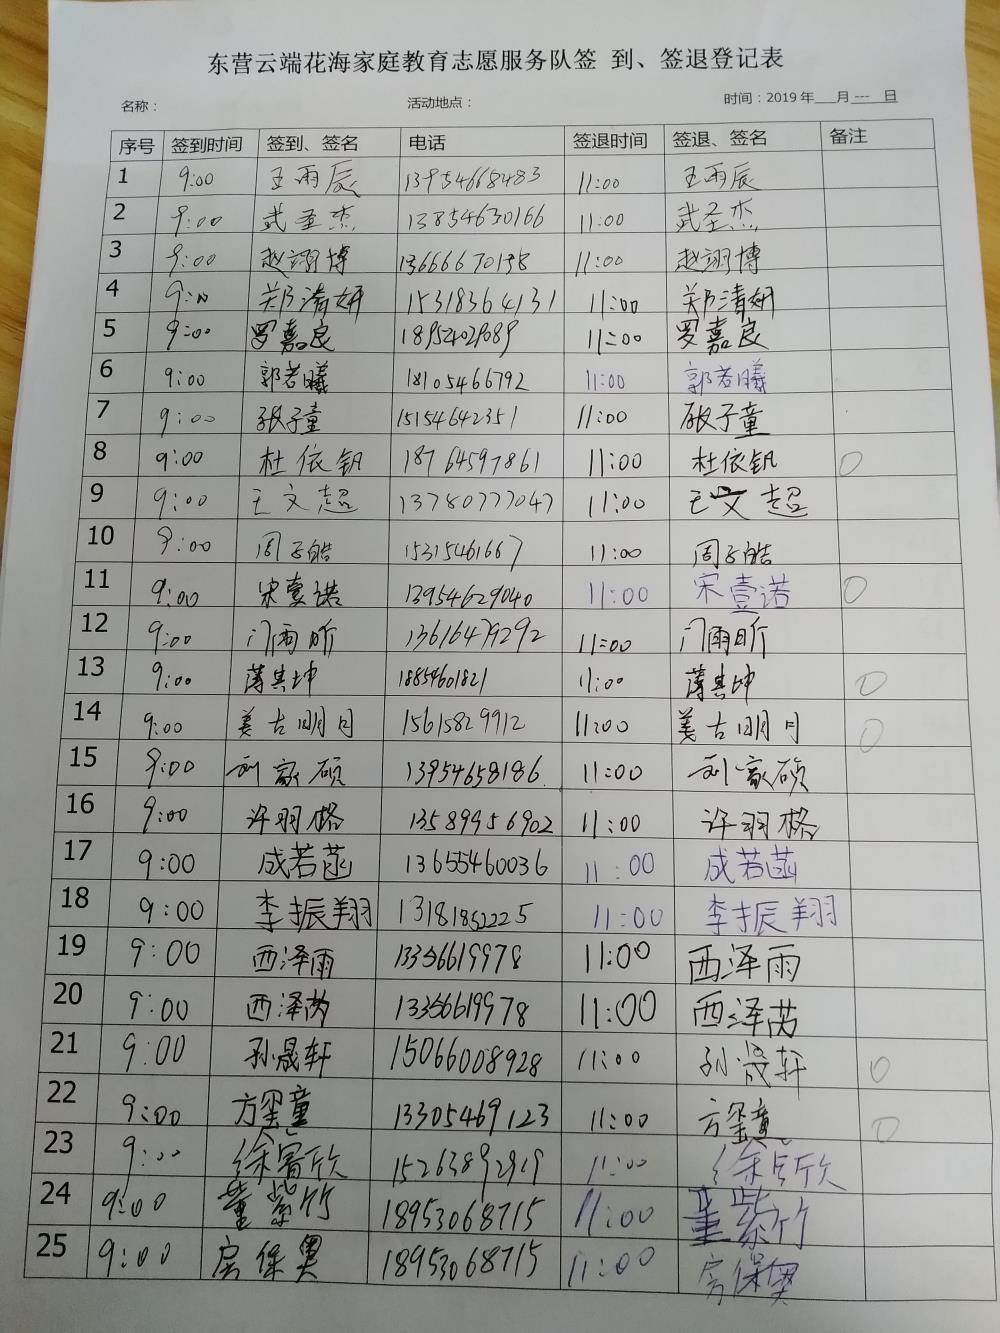 东营云端花海家庭教育志愿服务队签 到、签退登记表
名称： 活动地点： 时间：2019 年___月 ---__日
序号 签到时间 签到、签名 电话 签退时间 签退、签名 备注
1 9:00 王雨辰 13954668483 11:00 王雨辰
2 9:00 武圣杰 13854630166 11:00 武圣杰
3 9:00 赵翊博 11:00 赵翊博
4 9:00 郑清妍 15318364131 11:00 郑清妍
5 9:00 罗嘉良 11:00 罗嘉良
6 9:00 郭若曦 18105466792 11:00 郭若曦
7 9:00 张子童 15154642351 11:00 张子童
8 9:00 杜依钒 18764597861 11:00 杜依钒 0
9 9:00 王文超 13780777047 11:00 王文超
10 9:00 周子皓 15315461667 11:00 周子皓
11 9:00 宋壹诺 13954629040 11:00 宋壹诺 0
12 9:00 门雨昕 13616479292 11:00 门雨昕
13 9:00 薄其坤 18854601821 11:00 薄其坤 0
14 9:00 姜古明月 15615829912 11:00 姜古明月 0
15 9:00 刘家硕 13954658186 11:00 刘家硕
16 9:00 许羽格 13589956902 11:00 许羽格
17 9:00 成若菡 13655460036 11:00 成若菡
18 9:00 李振翔 13181852225 11:00 李振翔
19 9:00 西泽雨 13356619978 11:00 西泽雨
20 9:00 西泽芮 13356619978 11:00 西泽芮
21 9:00 孙晟轩 15066008928 11:00 孙晟轩 0
22 9:00 方玺童 13305469123 11:00 方玺童 0
23 9:00 15263892919 11:00
24 9:00 董紫竹 18953068715 11:00 董紫竹
25 9:00 房保奥 18953068715 11:00 房保奥